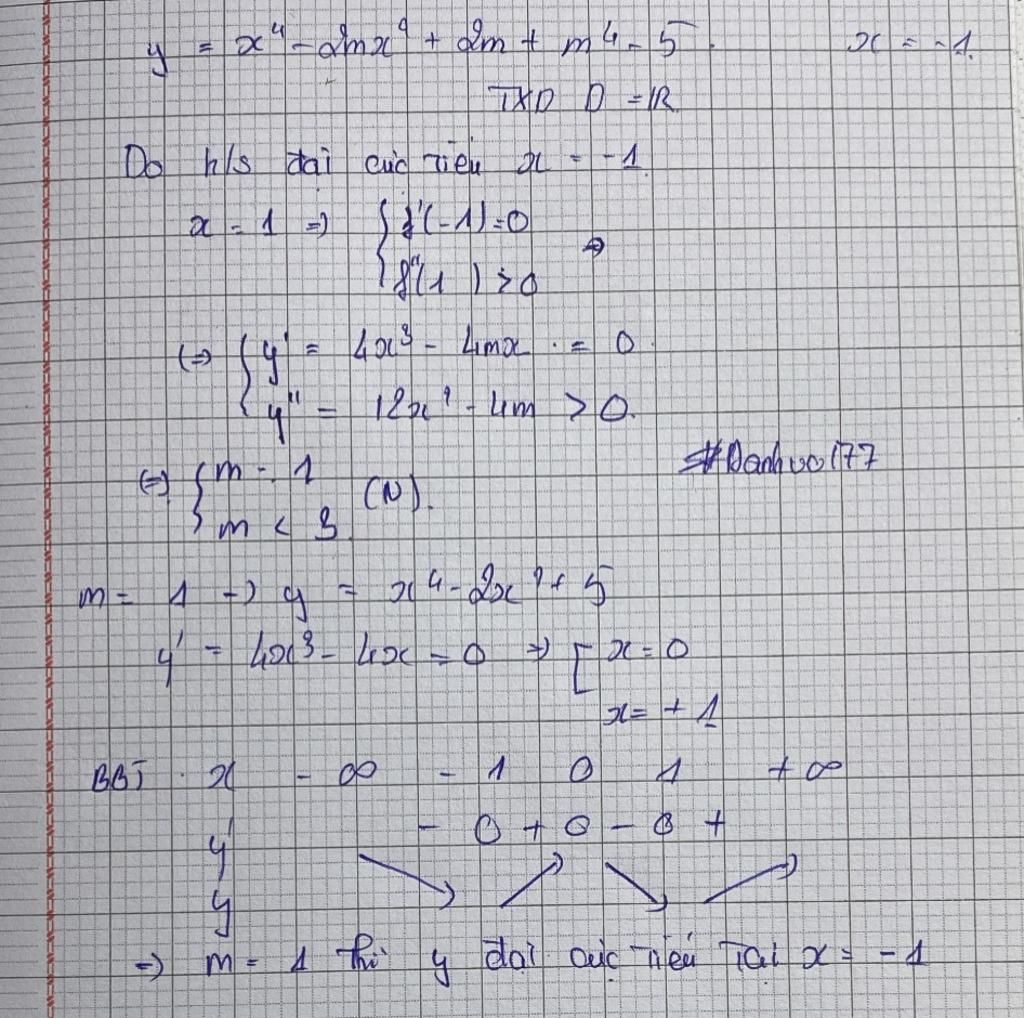 y = x⁴ - 2mx² + 2m + m⁴ - 5. x = -1.
TXD D = ℝ
Do h/s đạt cực tiểu x = -1.
x = 1 ⇒ { f'(-1) = 0
f''(1 ) > 0 ⇒
(⇒ { y' = 4x³ - 4mx . = 0
y'' = 12x² - 4m > 0.
#Danhvo177
(⇒) { m = 1
m < 3. (N).
m = 1 → y = x⁴ - 2x² + 5
y' = 4x³ - 4x = 0 ⇒ [ x = 0
x = + 1
BBT . x - ∞ - 1 0 1 + ∞
y' - 0 + 0 - 0 +
y ↘ ↗ ↘ ↗
⇒ m = 1 thì y đạt cực tiểu tại x = -1